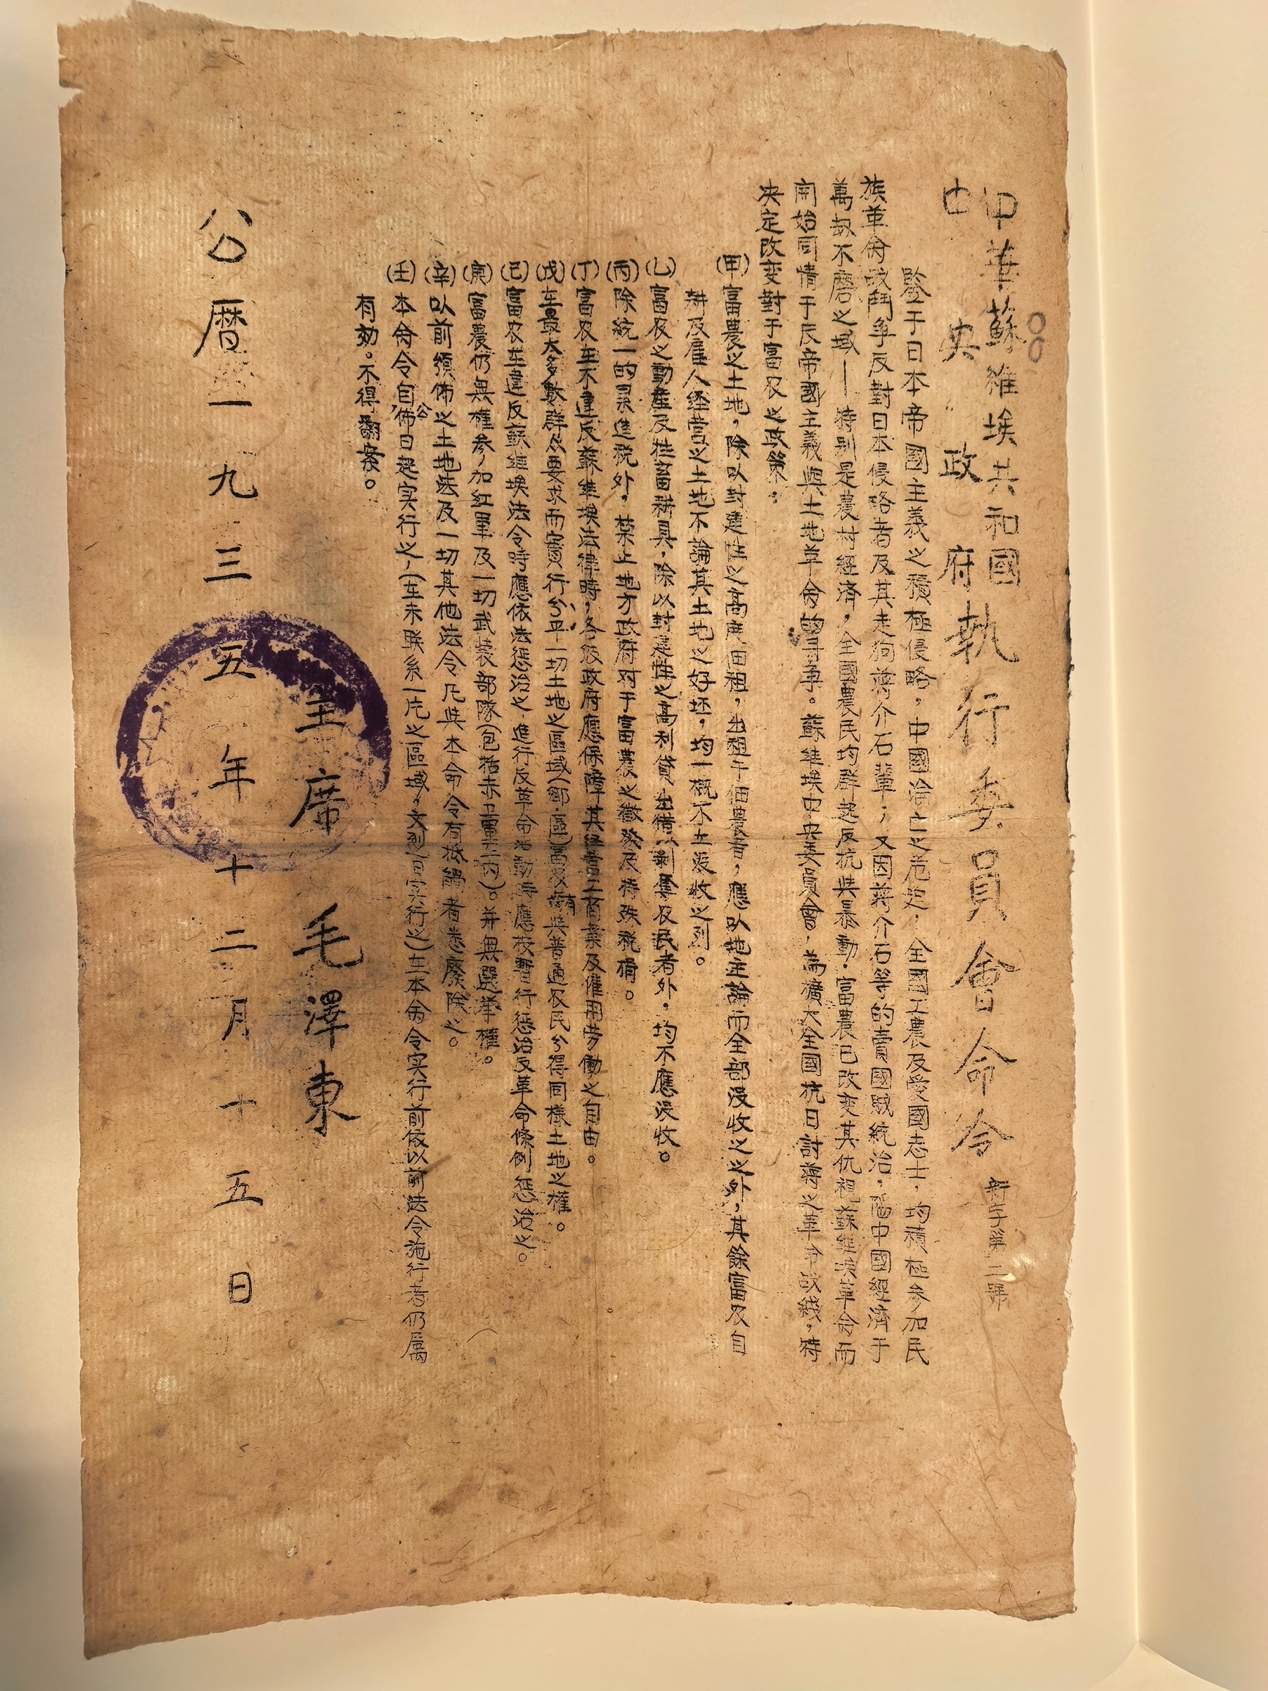 中華蘇維埃共和國
中央政府執行委員會命令 新字第二號
鑒于日本帝國主義之積極侵略，中國淪亡之危定，全國工農及愛國志士，均積極參加民
族革命战鬥爭反對日本侵略者及其走狗蔣介石輩；又因蔣介石等的賣國賊統治，陷中國經濟于
萬刼不磨之域——特别是農村經済，全國農民均群起反抗與暴動，富農已改变其仇視蘇維埃革命而
開始同情于反帝國主義與土地革命的鬥爭。蘇維埃中央委員會，為擴大全國抗日討蔣之革命战綫，特
决定改变對于富农之政策：
(甲)富農之土地，除以封建性之高度田租，出租于佃農者，應以地主論而全部没收之之外，其餘富农自
耕及雇人經营之土地不論其土地之好坯，均一概不在没收之列。
(乙)富农之動產及牲畜耕具，除以封建性之高利貸出借以剥奪农民者外，均不應没收。
(丙)除統一的累進税外，禁止地方政府对于富農之徵發及特殊税捐。
(丁)富农在不違反蘇維埃法律時，各級政府應保障其經营工商業及僱用劳働之自由。
(戊)在最大多數群众要求而實行分平一切土地之區域(鄉·區)富农有與普通农民分得同樣土地之權。
(己)富农在違反蘇維埃法令時應依法惩治之，進行反革命活動時應按暫行惩治反革命條例惩治之。
(庚)富農仍無權参加紅軍及一切武装部隊(包括赤卫軍在内)。并無選举權。
(辛)以前頒佈之土地法及一切其他法令凡與本命令有抵觸者悉廢除之。
(壬)本命令自公佈日起实行之，(在未联系一片之區域，文到日实行之)在本命令实行前依以前法令施行者仍属
有効。不得翻案。
主席 毛澤東
公曆一九三五年十二月十五日